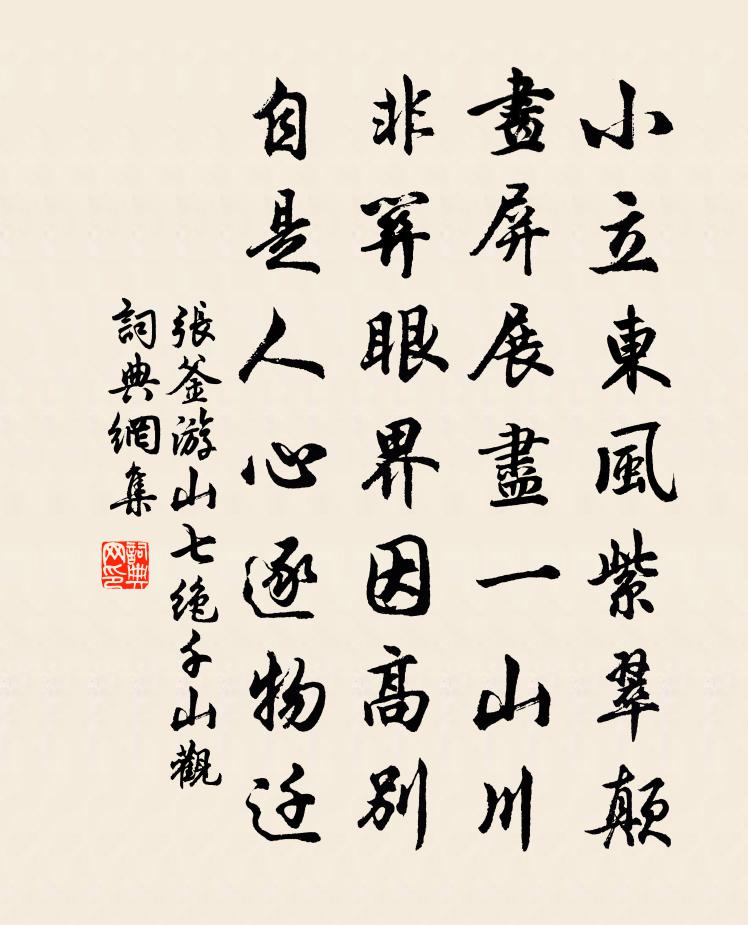 小立東風紫翠顛
畫屏展盡一山川
非關眼界因高別
自是人心逐物迁
張釜游山七絶千山觀
詞典網集
詞典网印